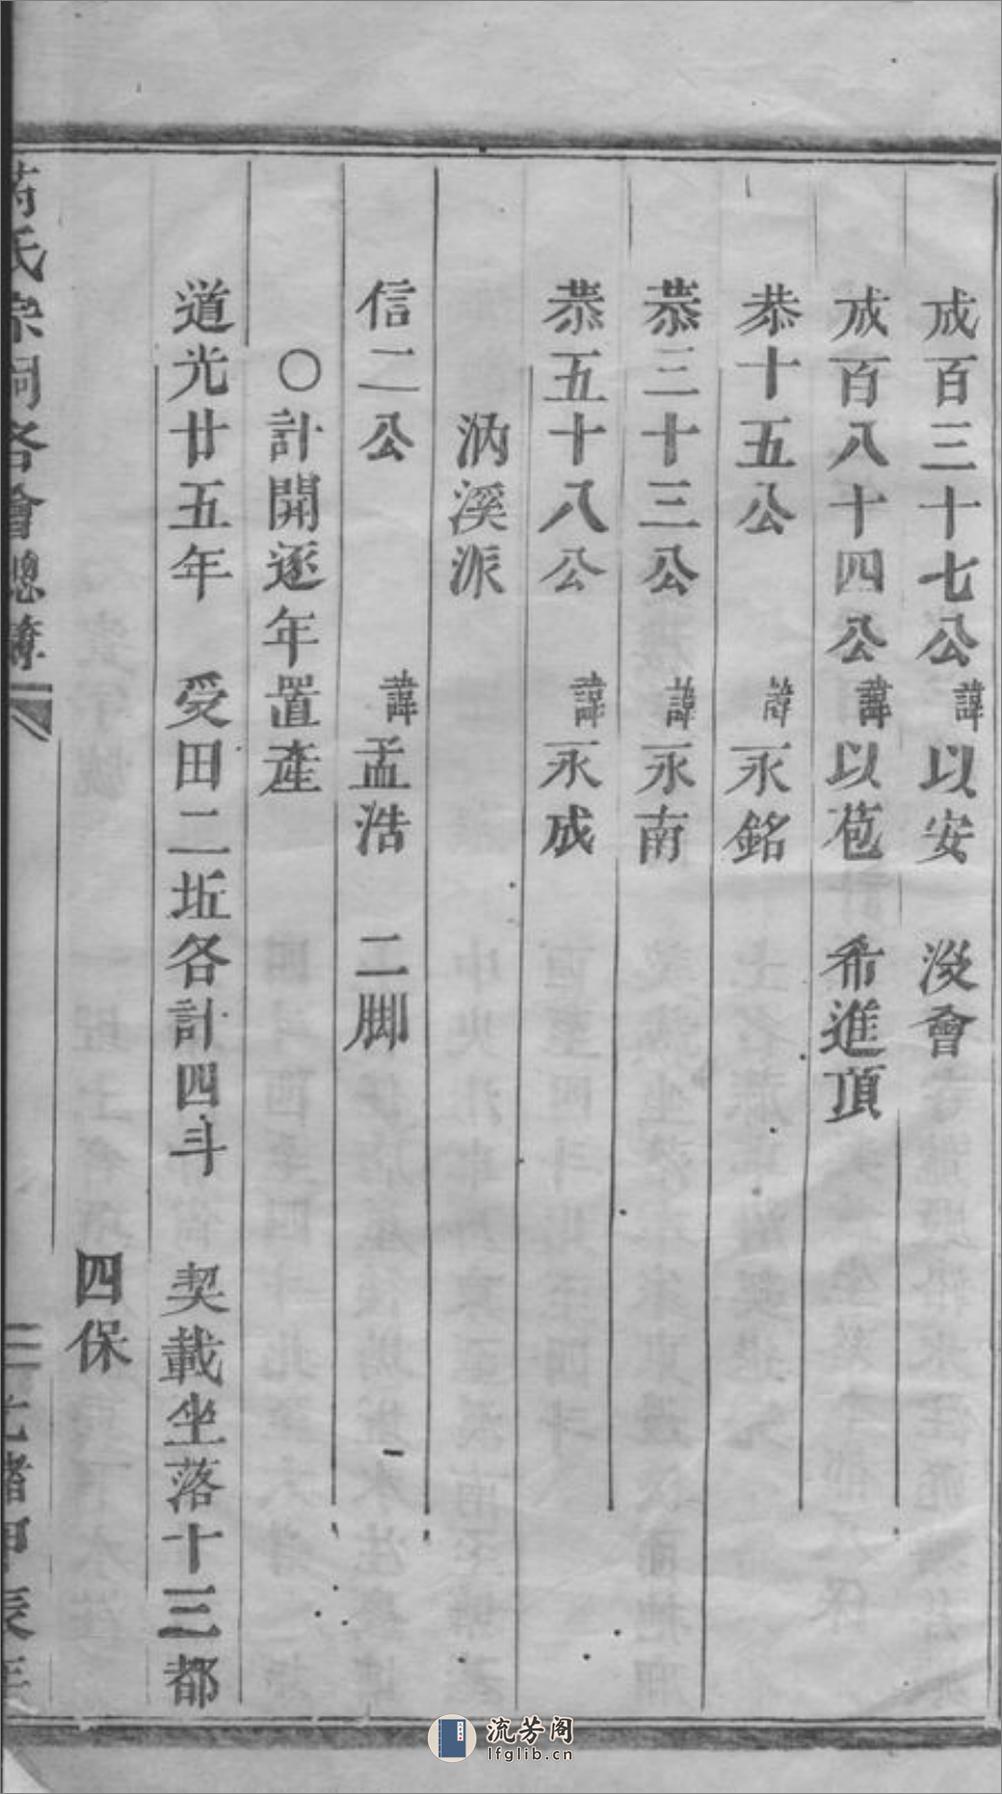 成百三十七公諱以安　沒會
成百八十四公諱以苞　希進頂
恭十五公　諱永銘
恭三十三公　諱永南
恭五十八公　諱永成
汭溪派
信二公　諱孟浩　二脚
○計開逐年置產
道光廿五年　受田二坵各計四斗　契載坐落十三都
四保
氏宗祠各會總簿
二
光緒甲辰年
流芳阁
lfglib.cn